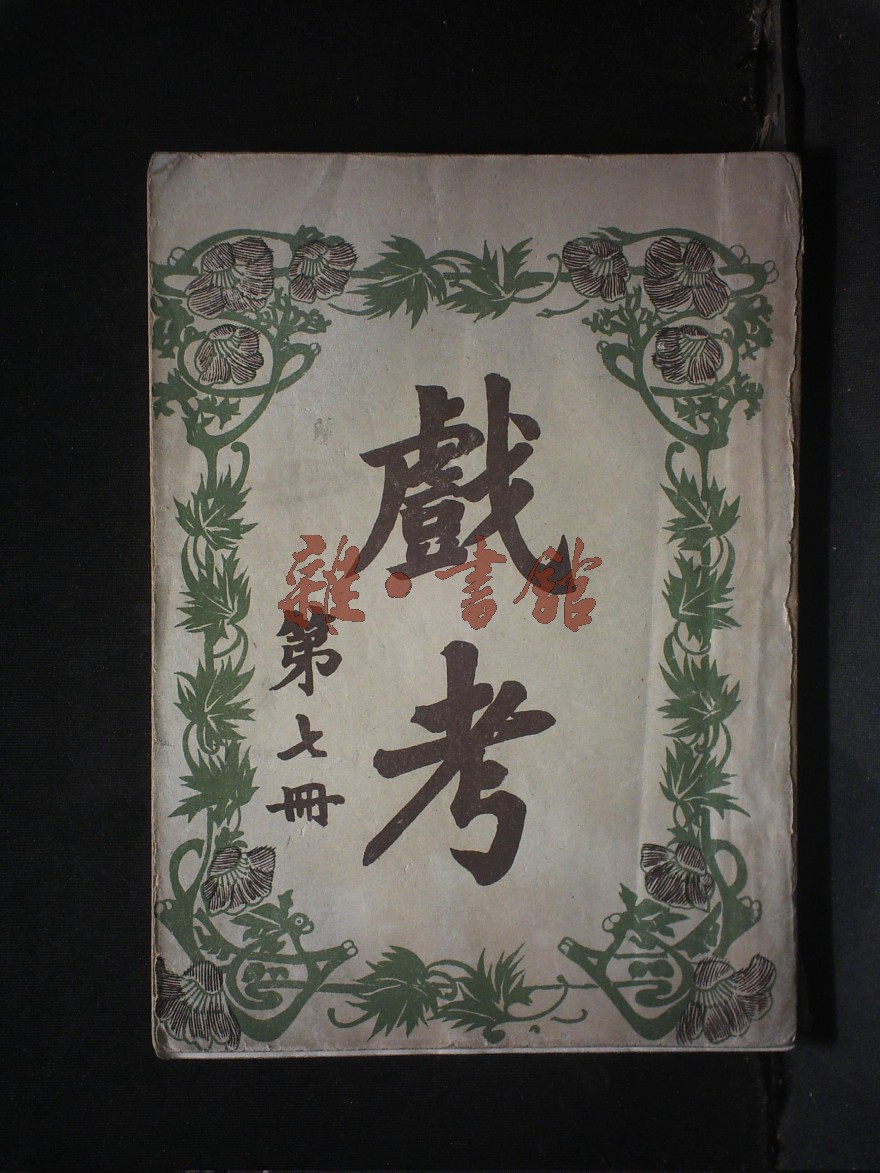 戲考
第七冊
雜·書館